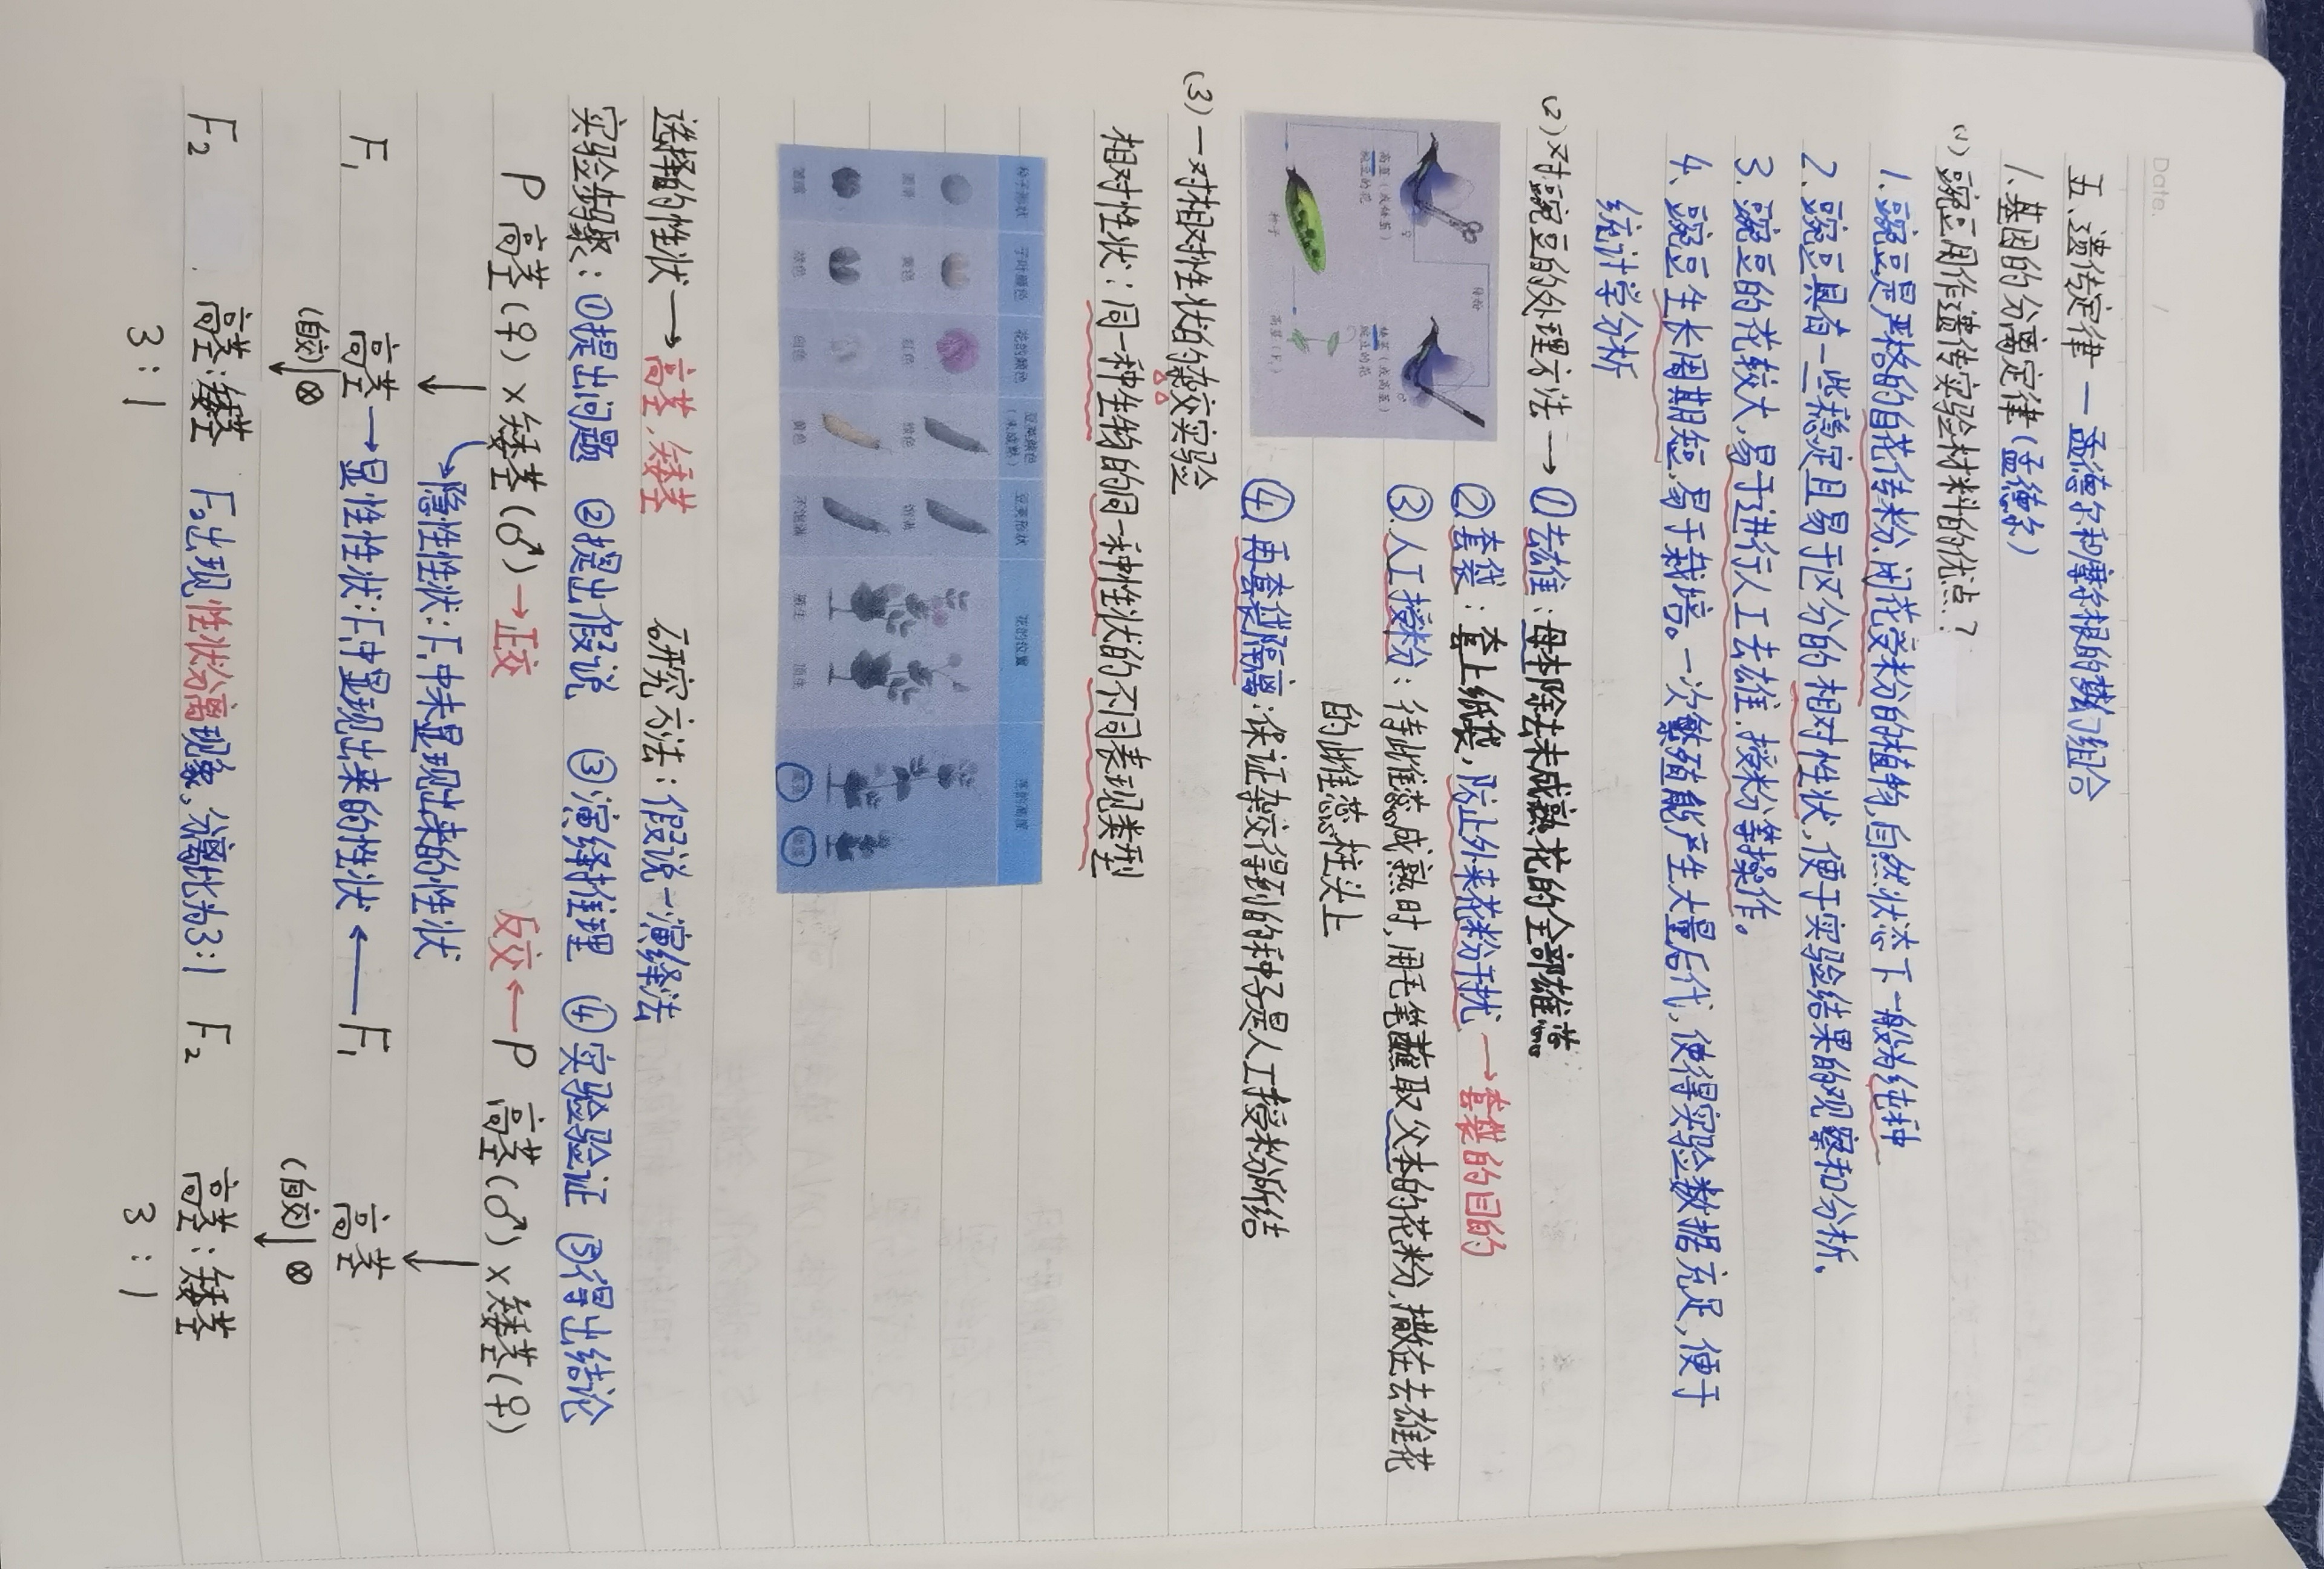 Date.     /
五、遗传定律 — 孟德尔和摩尔根的数习组合
1.基因的分离定律(孟德尔)
(1)豌豆用作遗传实验材料的优点?
1.豌豆是严格的自花传粉、闭花受粉的植物,自然状态下一般为纯种
2.豌豆具有一些稳定且易于区分的相对性状,便于实验结果的观察和分析。
3.豌豆的花较大,易于进行人工去雄、授粉等操作。
4.豌豆生长周期短,易于栽培。一次繁殖能产生大量后代,使得实验数据充足,便于
统计学分析
(2)对豌豆的处理方法 → ①去雄:母本除去未成熟花的全部雄蕊。
②套袋:套上纸袋,防止外来花粉干扰 → 套袋的目的
③人工授粉:待雌蕊成熟时,用毛笔蘸取父本的花粉,撒在去雄花
的雌蕊柱头上
④再套袋隔离:保证杂交得到的种子是人工授粉所结
高茎(或矮茎)
豌豆的花
♀
矮茎(或高茎)
豌豆的花
♂
种子
高茎(F₁)
(3)一对相对性状的杂交实验
相对性状:同一种生物的同一种性状的不同表现类型
种子形状 子叶颜色 花的颜色 豆荚颜色(未成熟) 豆荚形状 花的位置 茎的高度
圆滑 黄色 红色 绿色 饱满
皱缩 绿色 白色 黄色 不饱满 腋生 顶生 高茎 矮茎
选择的性状→高茎,矮茎 研究方法:假说—演绎法
实验步骤:①提出问题 ②提出假说 ③演绎推理 ④实验验证 ⑤得出结论
P 高茎(♀)×矮茎(♂)→正交 反交←P 高茎(♂)×矮茎(♀)
↓ ↘隐性性状:F₁中未显现出来的性状 ↓
F₁ 高茎→显性性状:F₁中显现出来的性状←F₁ 高茎
(自交)↓⊗ (自交)↓⊗
F₂ 高茎:矮茎 F₂出现性状分离现象,分离比为3:1 F₂ 高茎:矮茎
3 : 1 3 : 1